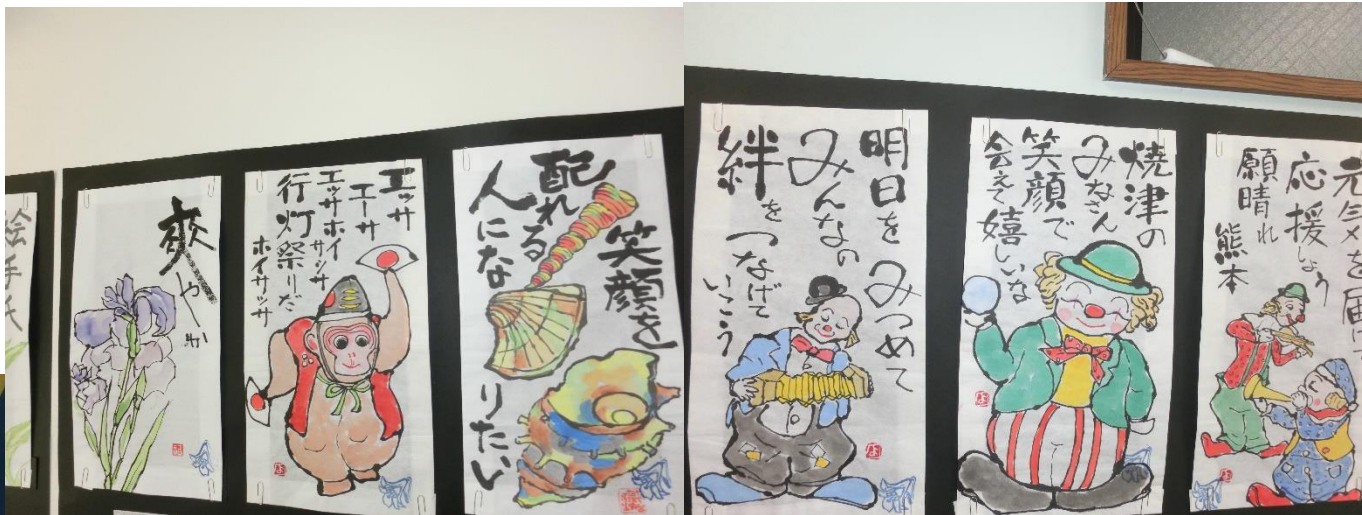 絵手紙
爽やか
エッサ
エーサ
エッサホイ
サッサ
行灯祭りだ
ホイサッサ
笑顔を
配れる
人になりたい
明日をみつめて
みんなの
絆をつなげていこう
焼津の
みなさん
笑顔で
会えて嬉しいな
元気を
応援しよう
願晴れ
熊本